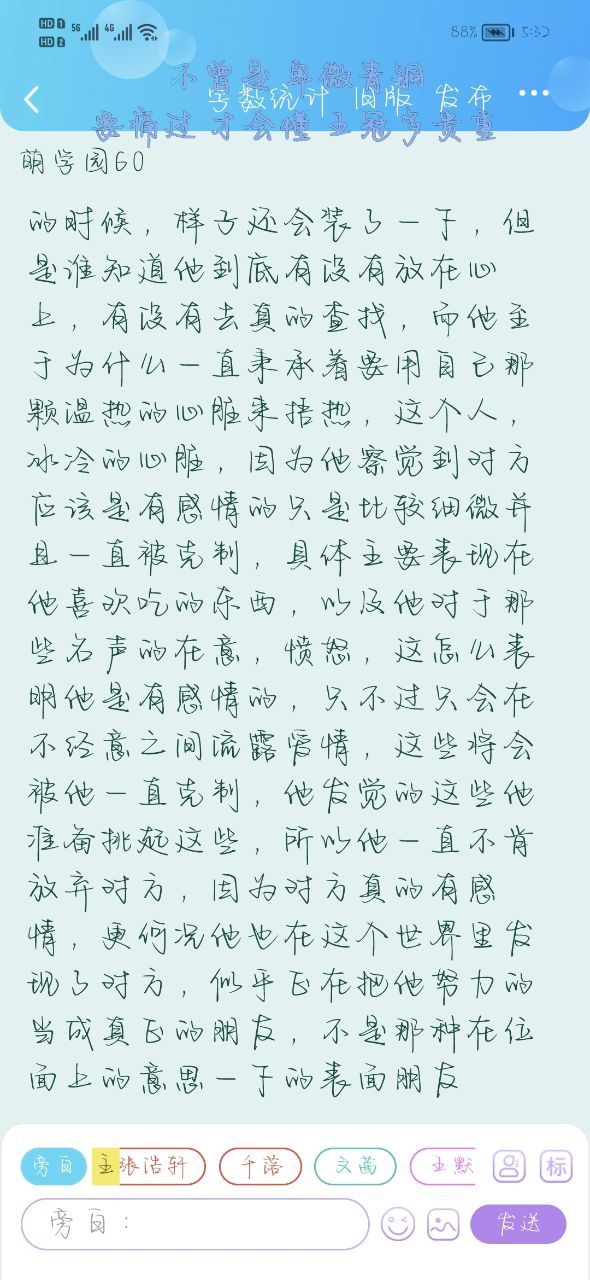 HD 1 5G 4G 88% 5:32
HD 2
不曾是卑微青铜
字数统计 旧版 发布
要痛过才会懂王冠多贵重
萌学园60
的时候，样子还会装了一下，但
是谁知道他到底有没有放在心
上，有没有去真的查找，而他至
于为什么一直秉承着要用自己那
颗温热的心脏来捂热，这个人，
冰冷的心脏，因为他察觉到对方
应该是有感情的只是比较细微并
且一直被克制，具体主要表现在
他喜欢吃的东西，以及他对于那
些名声的在意，愤怒，这怎么表
明他是有感情的，只不过只会在
不经意之间流露爱情，这些将会
被他一直克制，他发觉的这些他
准备挑起这些，所以他一直不肯
放弃对方，因为对方真的有感
情，更何况他也在这个世界里发
现了对方，似乎正在把他努力的
当成真正的朋友，不是那种在位
面上的意思一下的表面朋友
旁白 主张浩轩 千落 文茜 王默 标
旁白： 发送